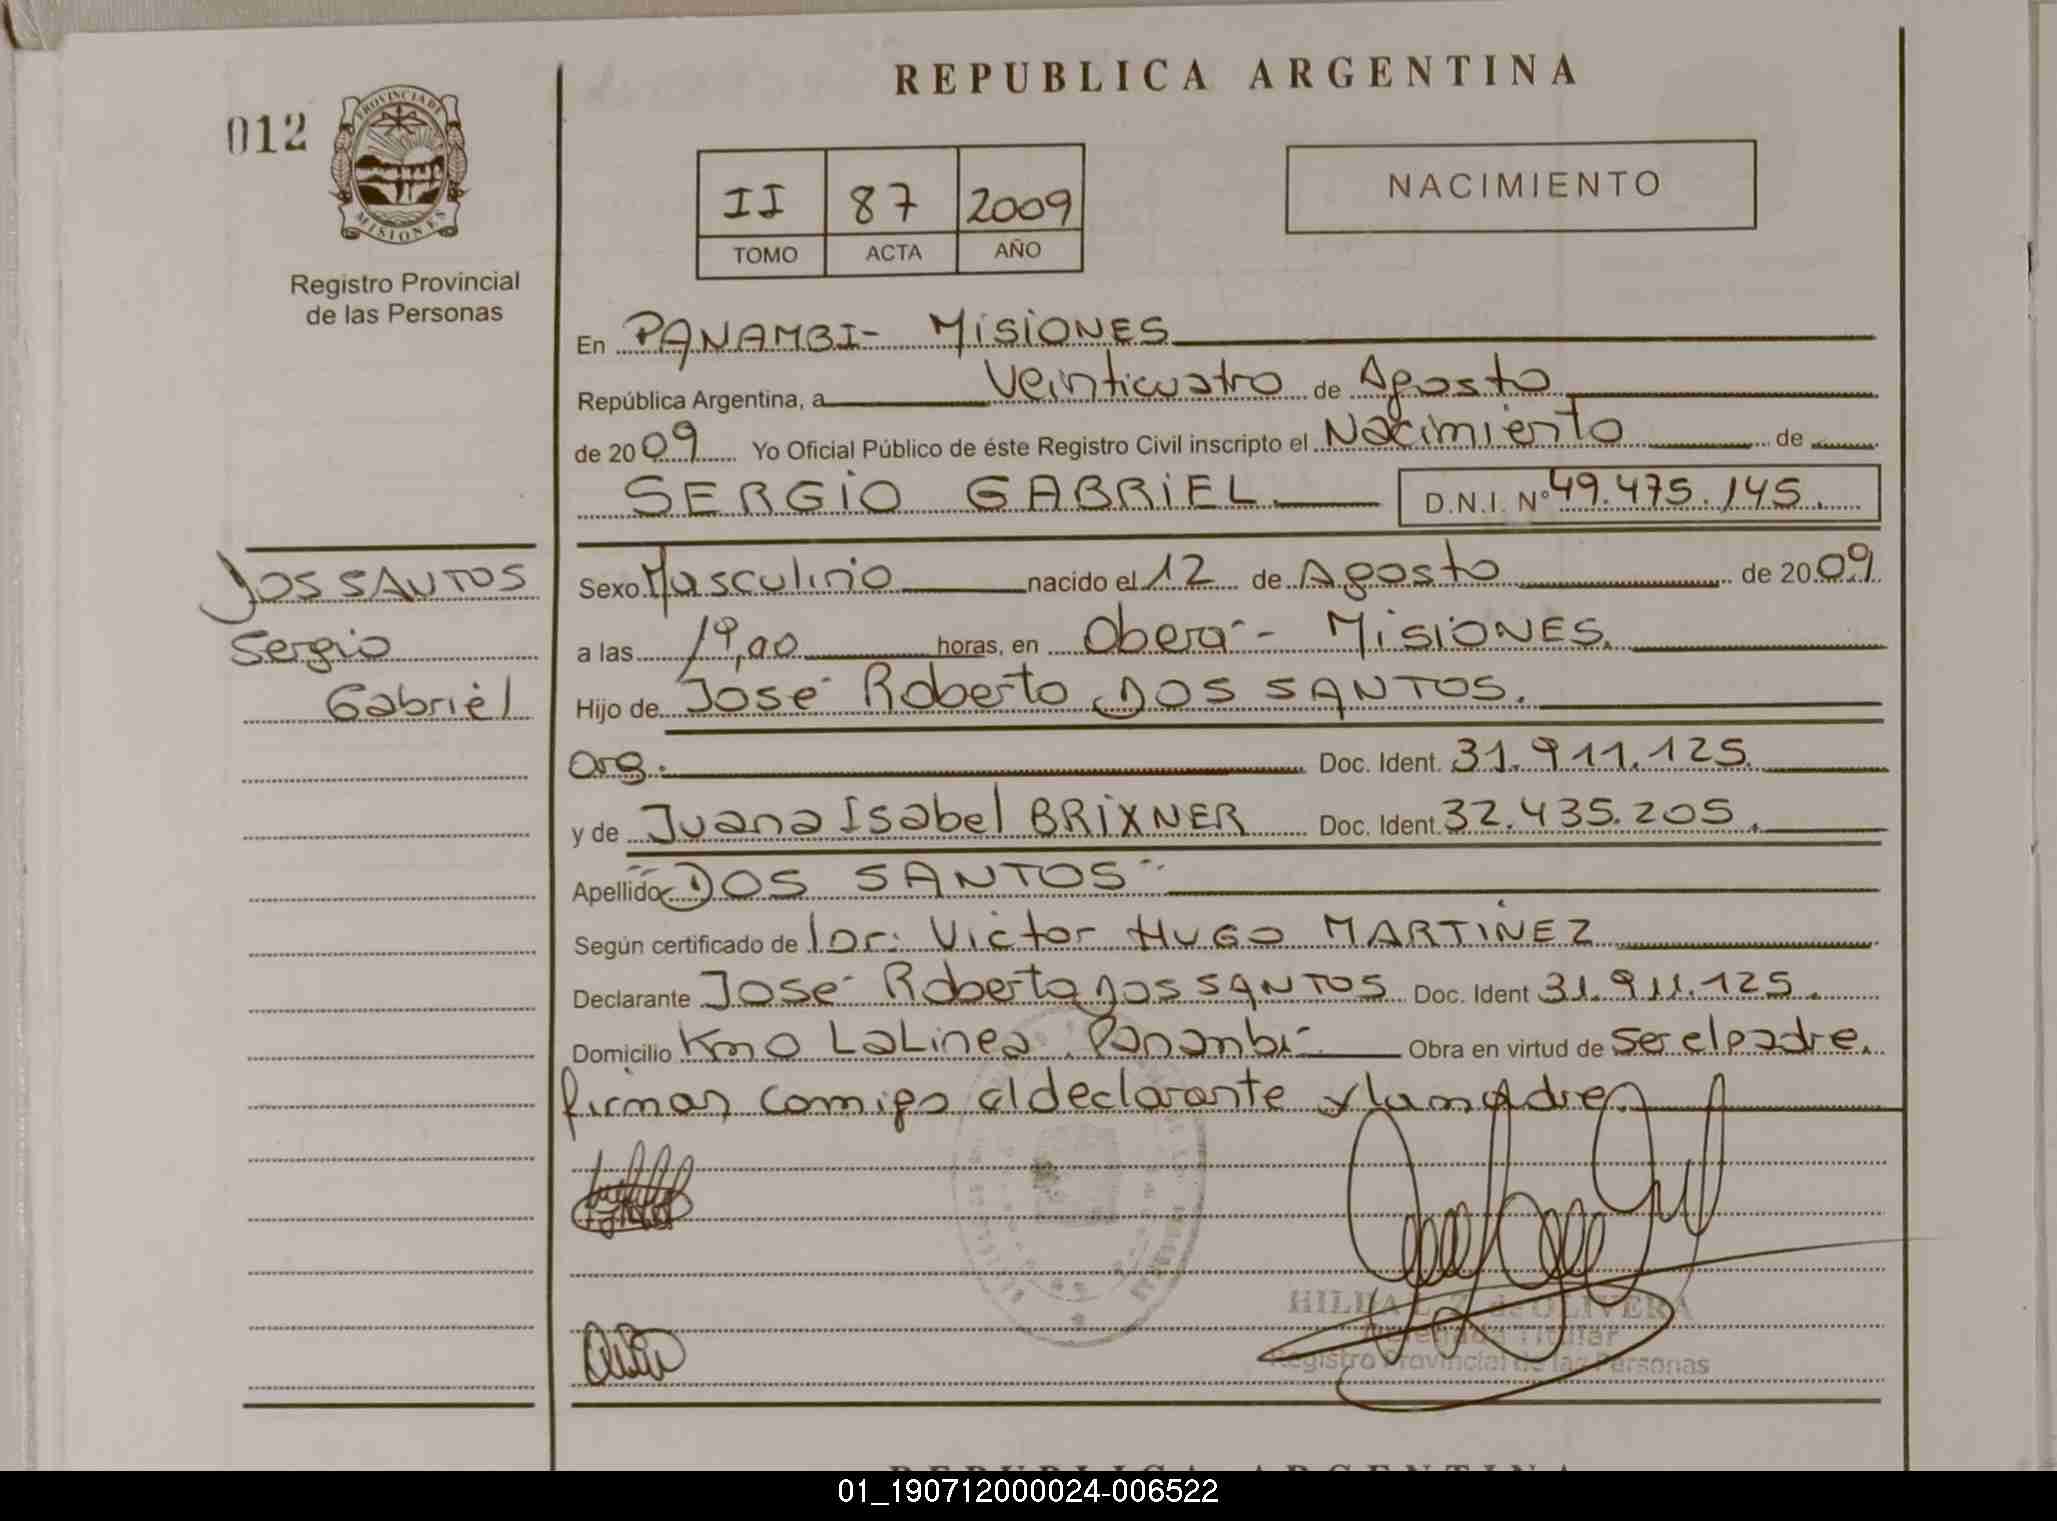 REPUBLICA ARGENTINA
012
PROVINCIA DE
MISIONES
Registro Provincial
de las Personas
II 87 2009
TOMO ACTA AÑO
NACIMIENTO
En PANAMBI- MISIONES
República Argentina, a Veinticuatro de Agosto
de 2009 Yo Oficial Público de éste Registro Civil inscripto el Nacimiento de
SERGIO GABRIEL D.N.I. Nº 49.475.145.
DOS SANTOS
Sergio
Gabriel
Sexo Masculino nacido el 12 de Agosto de 2009
a las 19,00 horas, en Oberá - MISIONES.
Hijo de José Roberto DOS SANTOS.
Arg. Doc. Ident. 31.911.125.
y de Juana Isabel BRIXNER Doc. Ident. 32.435.205.
Apellido "DOS SANTOS"
Según certificado de Dr: Victor HUGO MARTINEZ
Declarante José Roberto DOS SANTOS Doc. Ident 31.911.125.
Domicilio Km 0 La Linea. Panambí Obra en virtud de ser el padre.
firman comigo el declarante y la madre.
HILDA L. Z. de OLIVERA
Delegada Titular
Registro Provincial de las Personas
REPUBLICA ARGENTINA
01_190712000024-006522